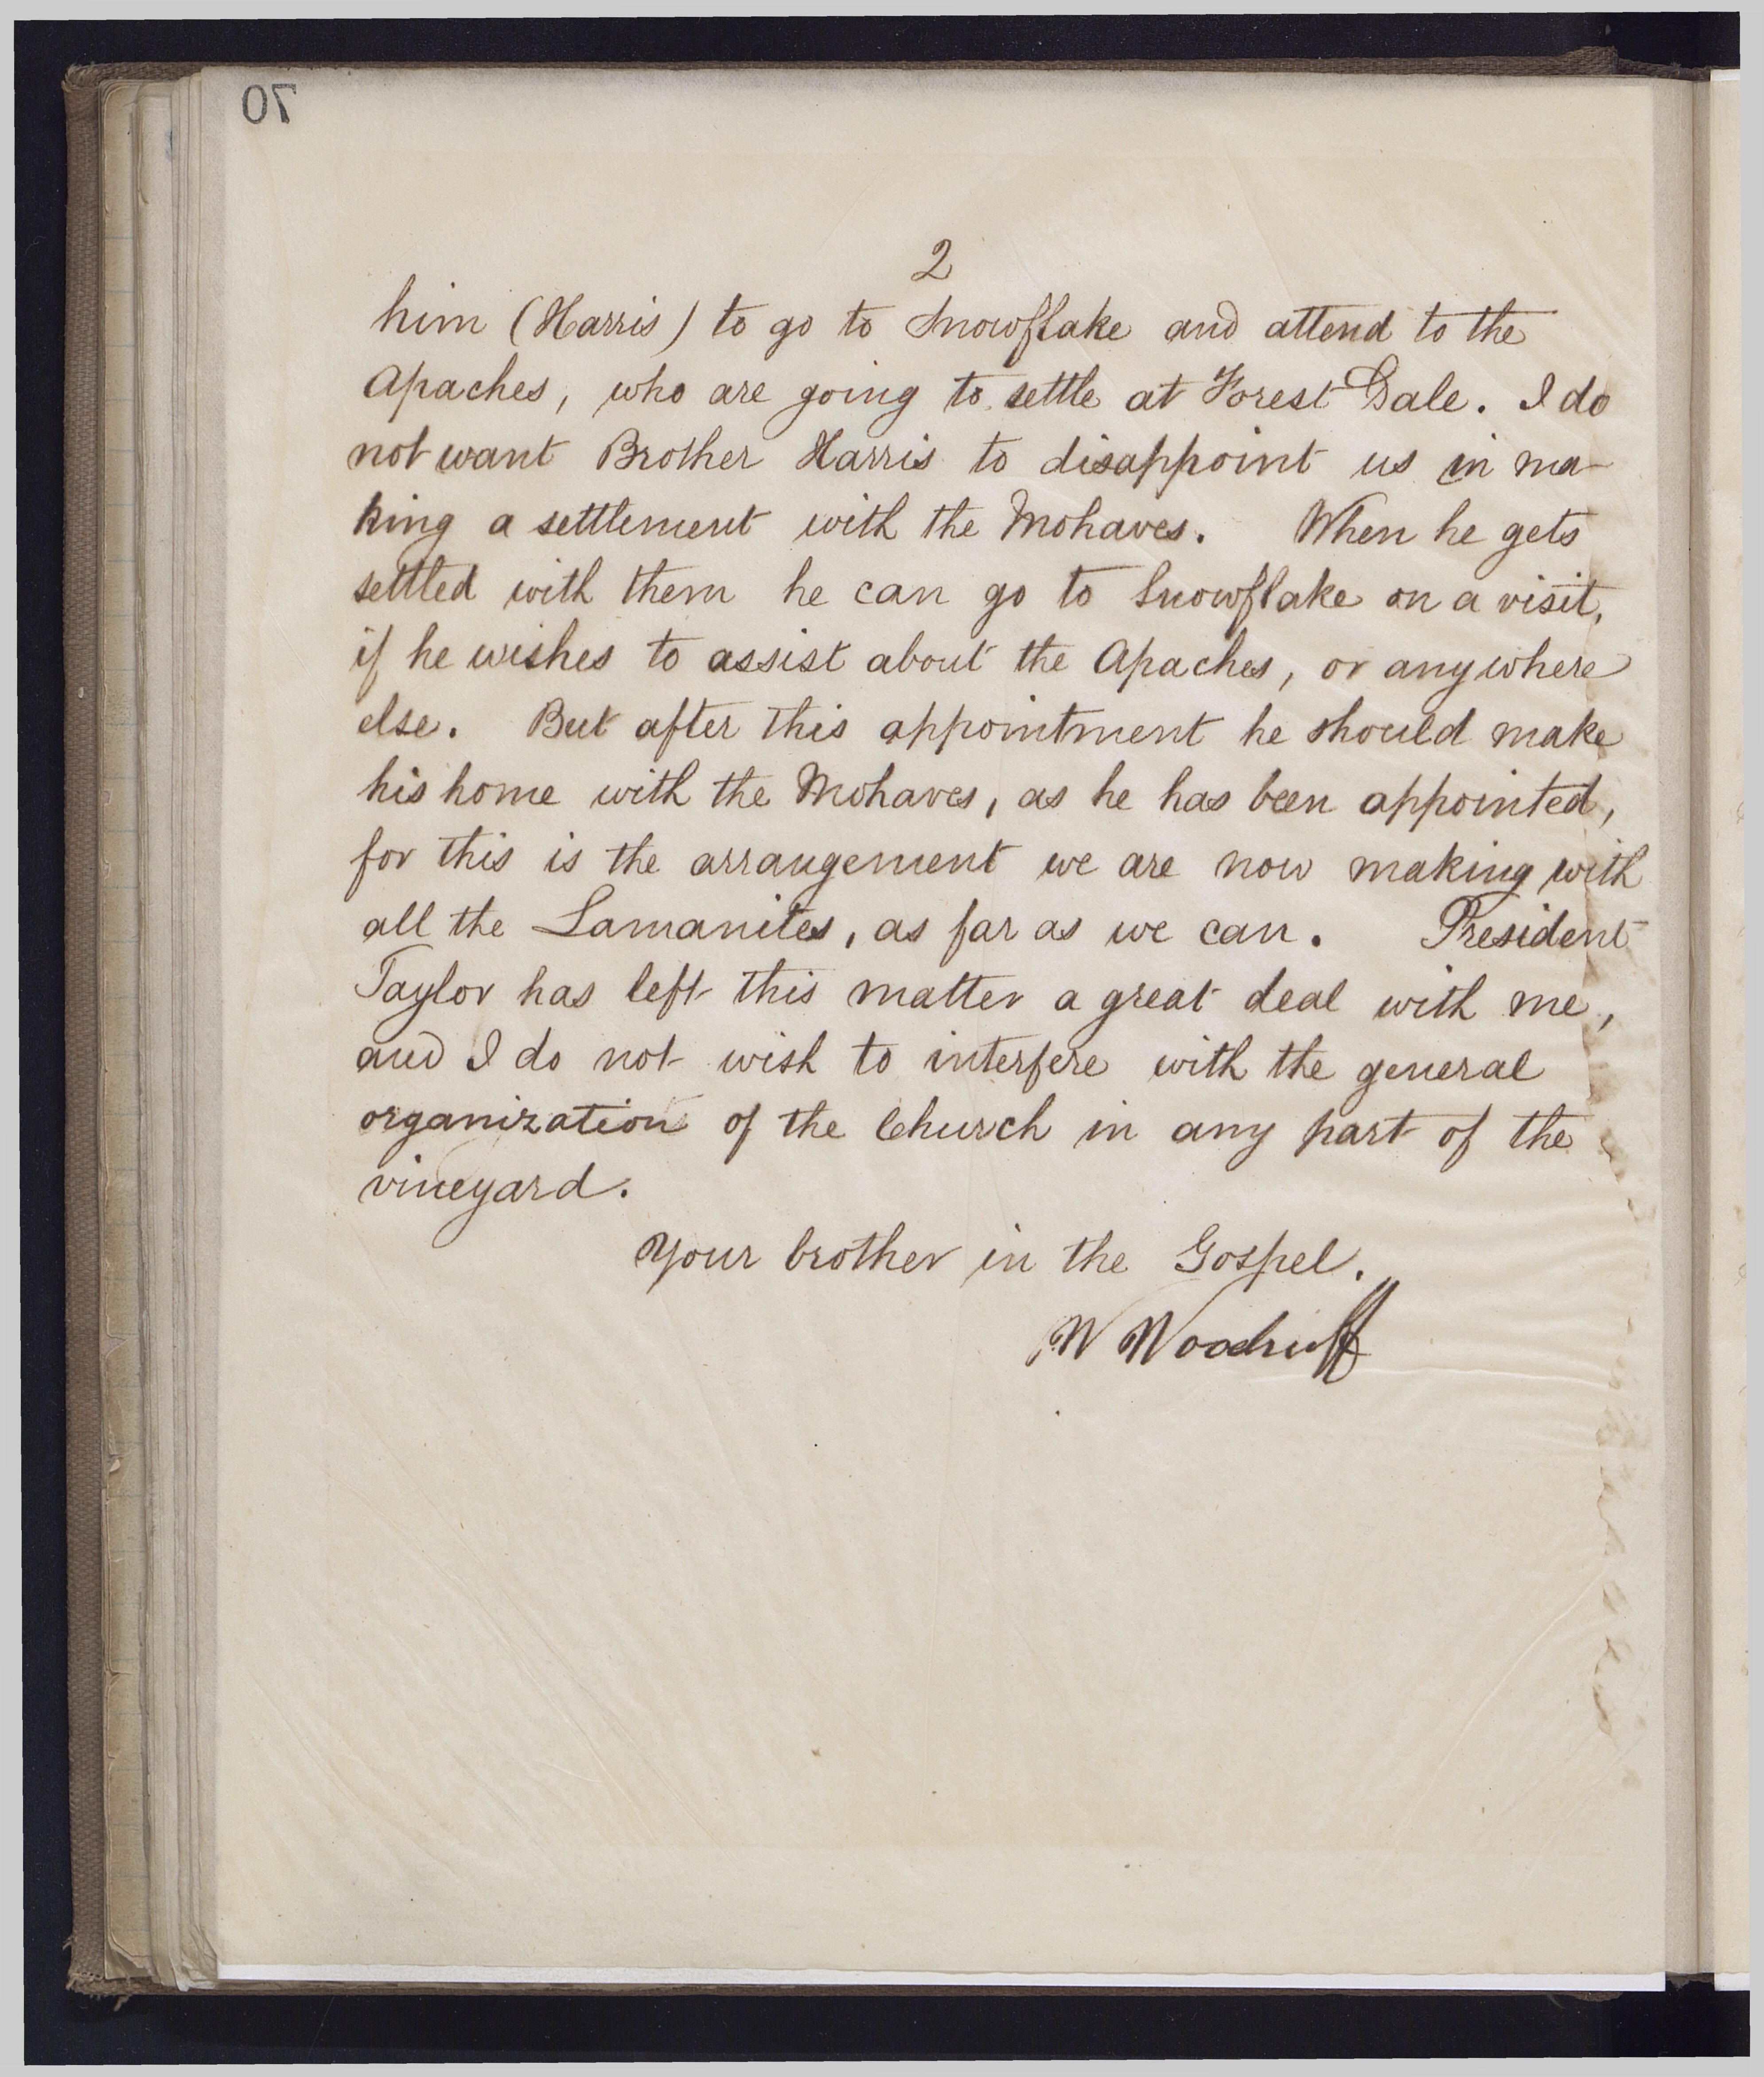 70
2
him (Harris) to go to Snowflake and attend to the
Apaches, who are going to settle at Forest Dale. I do
not want Brother Harris to disappoint us in ma-
king a settlement with the Mohaves. When he gets
settled with them he can go to Snowflake on a visit,
if he wishes to assist about the Apaches, or anywhere
else. But after this appointment he should make
his home with the Mohaves, as he has been appointed,
for this is the arrangement we are now making with
all the Lamanites, as far as we can. President
Taylor has left this matter a great deal with me,
and I do not wish to interfere with the general
organization of the Church in any part of the
vineyard.
Your brother in the Gospel.
W Woodruff